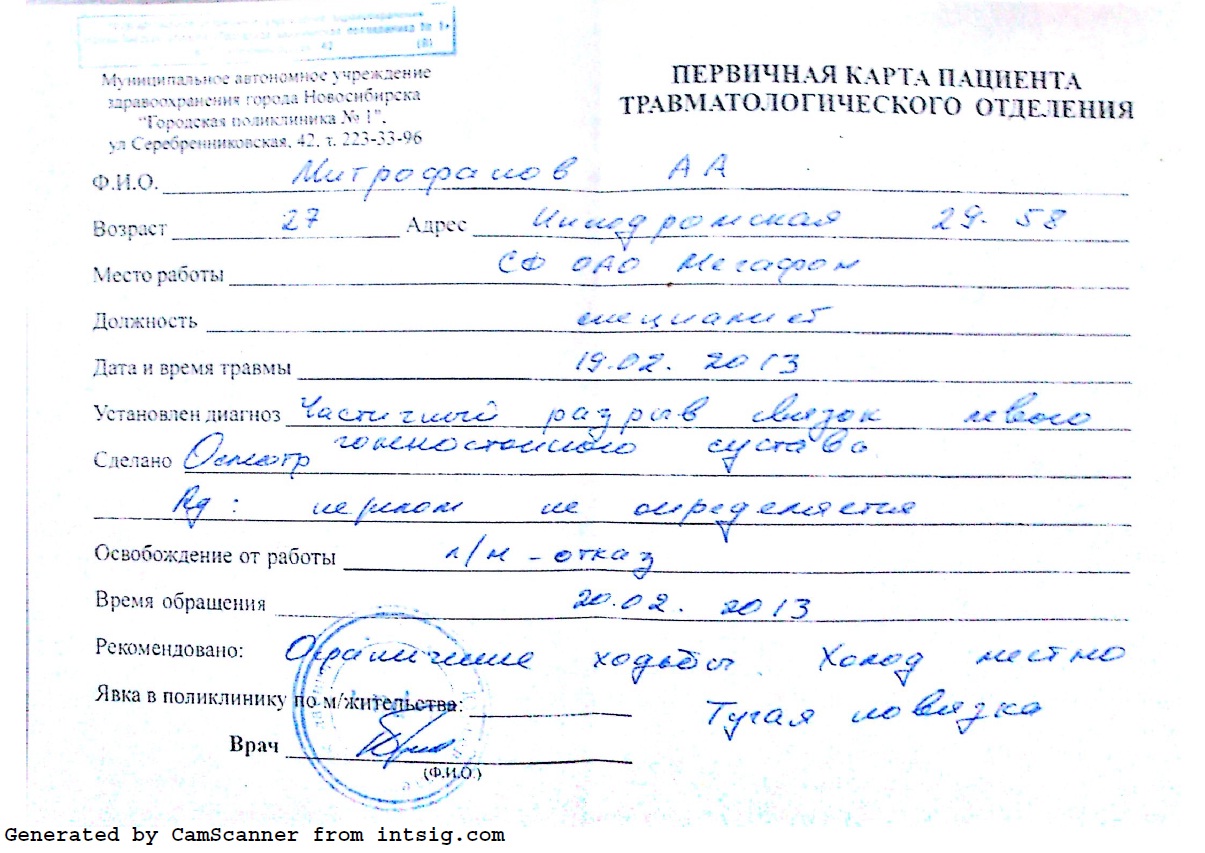 поликлиника № 1"
42
Муниципальное автономное учреждение
здравоохранения города Новосибирска
"Городская поликлиника № 1",
ул Серебренниковская, 42, т. 223-33-96
ПЕРВИЧНАЯ КАРТА ПАЦИЕНТА
ТРАВМАТОЛОГИЧЕСКОГО ОТДЕЛЕНИЯ
Ф.И.О. Митрофанов АА
Возраст 27 Адрес Ипподромская 29-58
Место работы СФ ОАО Мегафон
Должность специалист
Дата и время травмы 19.02.2013
Установлен диагноз Частичный разрыв связок левого
голеностопного сустава
Сделано Осмотр
Rg: перелом не определяется
Освобождение от работы л/н - отказ
Время обращения 20.02.2013
Рекомендовано: Ограничение ходьбы. Холод местно
Явка в поликлинику по м/жительства: Тугая повязка
Врач
(Ф.И.О.)
Generated by CamScanner from intsig.com